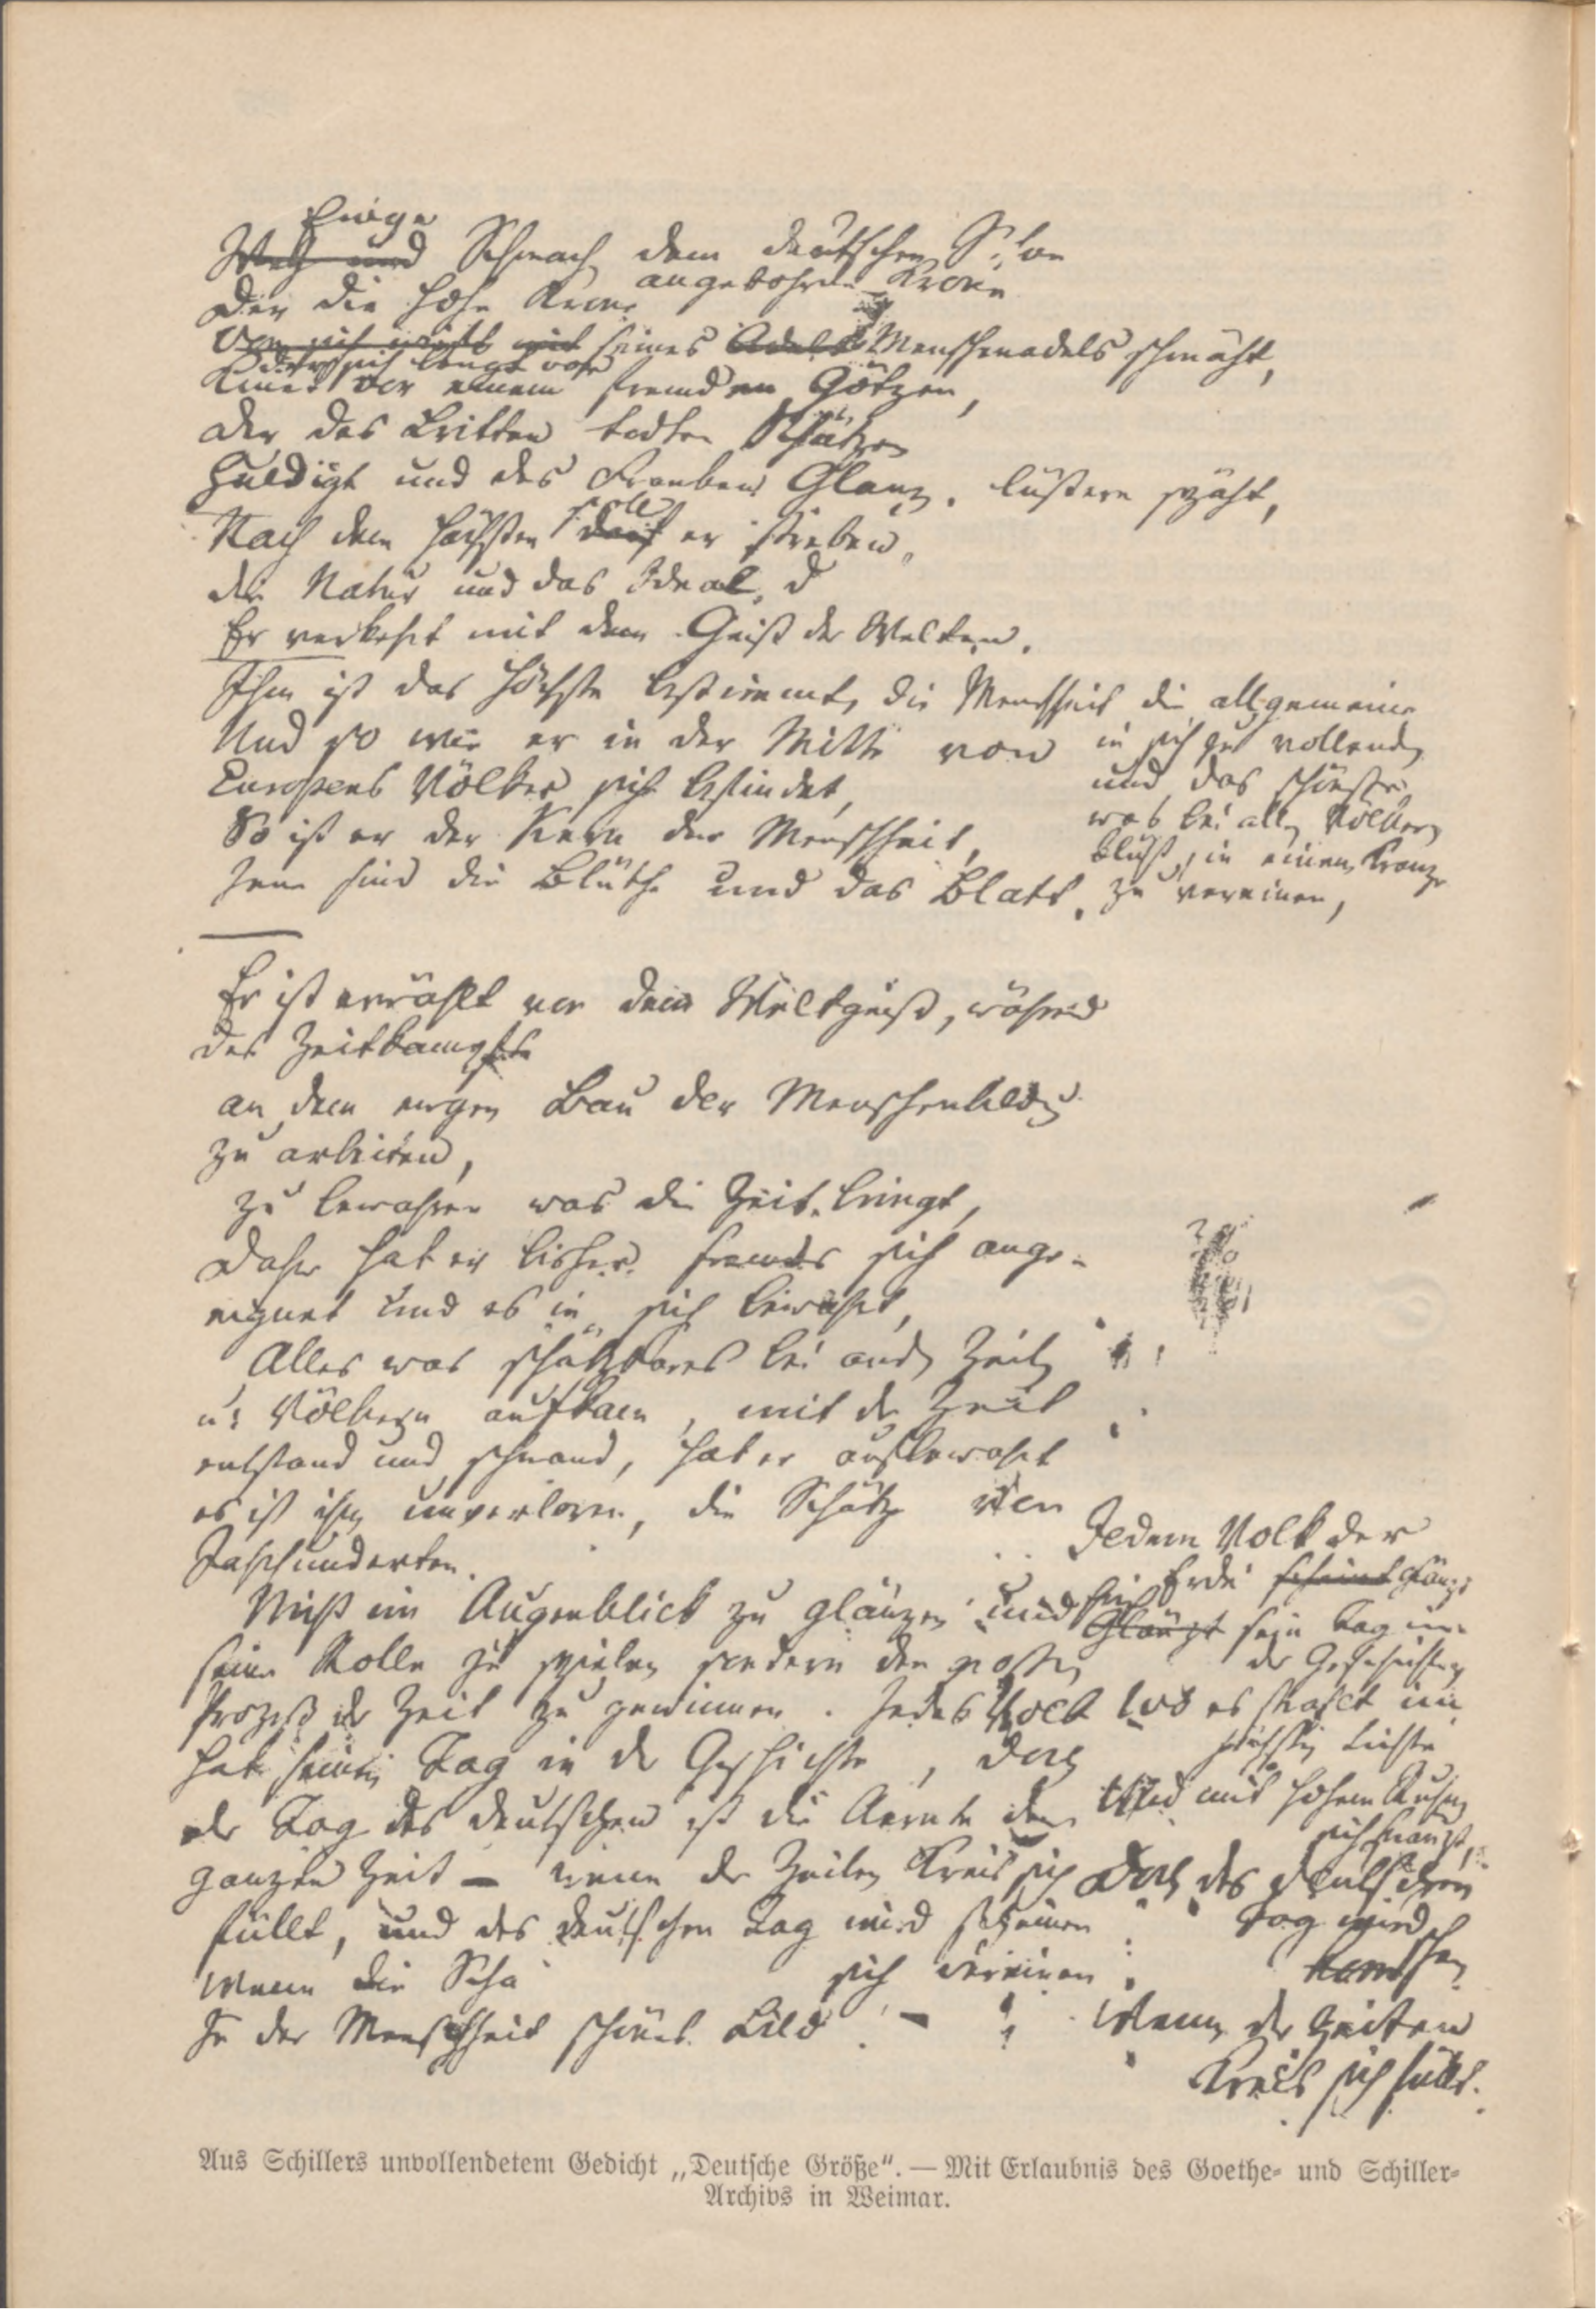 Ewige
Weh und Schmach dem deutschen Sohne
angebohrne Krone
Der die hohe Krone
Von sich wirft und seines Adels Menschenadels schmäht,
der sich beugt vor
Kniet vor einem fremden Götzen,
Der des Britten todten Schätzen
Huldigt und des Franken Glanz. lüstern späht,
soll
Nach dem Höchsten darf er streben,
die Natur und das Ideal,
Er verkehrt mit dem Geist der Welten.
Ihm ist das Höchste bestimmt, die Menschheit die allgemeine
in sich zu vollenden
und das schönste
was bei allen Völkern
blüht, in einem Kranze
zu vereinen,
Und so wie er in der Mitte von
Europens Völker sich befindet,
So ist er der Kern der Menschheit,
Jene sind die Blüthe und das Blatt.
Er ist erwählt von dem Weltgeist, während
des Zeitkampfs
an dem ewgen Bau der Menschenbildung
zu arbeiten,
zu bewahren was die Zeit bringt,
Daher hat er bisher fremdes sich ange-
eignet und es in sich bewahrt,
Alles was schätzbares bei andern Zeiten
u: Völkern aufkam, mit der Zeit
entstand und schwand, hat er aufbewahrt
es ist ihm unverloren, die Schätze von
Jahrhunderten.
Nicht im Augenblick zu glänzen und
seine Rolle zu spielen sondern den großen
Prozeß der Zeit zu gewinnen. Jedes Volk
hat seinen Tag in der Geschichte, doch
der Tag des Deutschen ist die Aernte der
ganzen Zeit — wenn der Zeiten Kreis sich
füllt, und des Deutschen Tag wird scheinen
Wenn die Scha
sich vereinen
In der Menschheit schönes Bild! —
Jedem Volk der
Erde scheint glänzt
einst
Glänzt sein Tag in
der Geschichte,
wo es strahlt im
höchsten Lichte
Und mit hohem Ruhm
sich kränzt,
Doch des Deutschen
Tag wird
scheinen
Wenn der Zeiten
Kreis sich füllt.
Aus Schillers unvollendetem Gedicht „Deutsche Größe“. — Mit Erlaubnis des Goethe- und Schiller-
Archivs in Weimar.